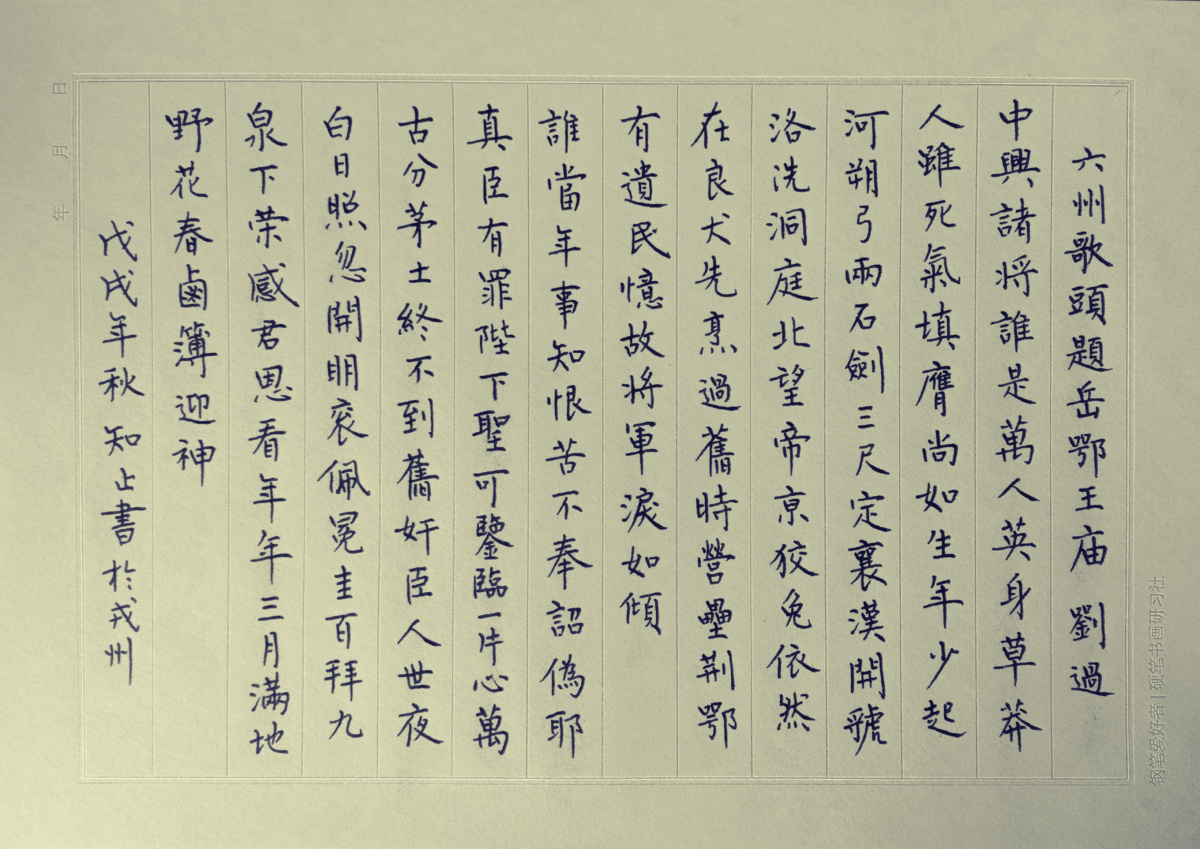 六州歌頭題岳鄂王庙 劉過
中興諸将誰是萬人英身草莽
人雖死氣填膺尚如生年少起
河朔弓兩石劍三尺定襄漢開虢
洛洗洞庭北望帝京狡兔依然
在良犬先烹過舊時營壘荆鄂
有遺民憶故将軍淚如傾
誰當年事知恨苦不奉詔偽耶
真臣有罪陛下聖可鑒臨一片心萬
古分茅土終不到舊奸臣人世夜
白日照忽開明衮佩冕圭百拜九
泉下荣感君恩看年年三月满地
野花春鹵簿迎神
戊戌年秋知止書於戎州
年 月 日
钢笔爱好者|硬笔书画研习社